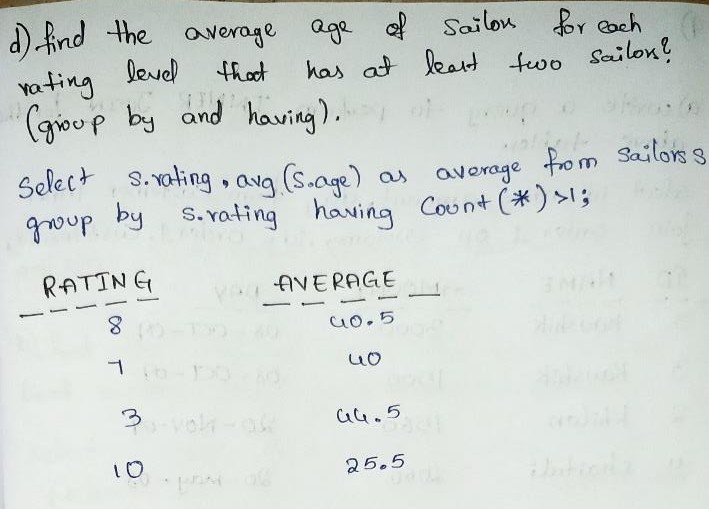 d) find the average age of sailors for each
rating level that has at least two sailors?
(group by and having).
Select s.rating, avg(s.age) as average from sailors s
group by s.rating having count(*)>1;
RATING AVERAGE
8 40.5
7 40
3 44.5
10 25.5